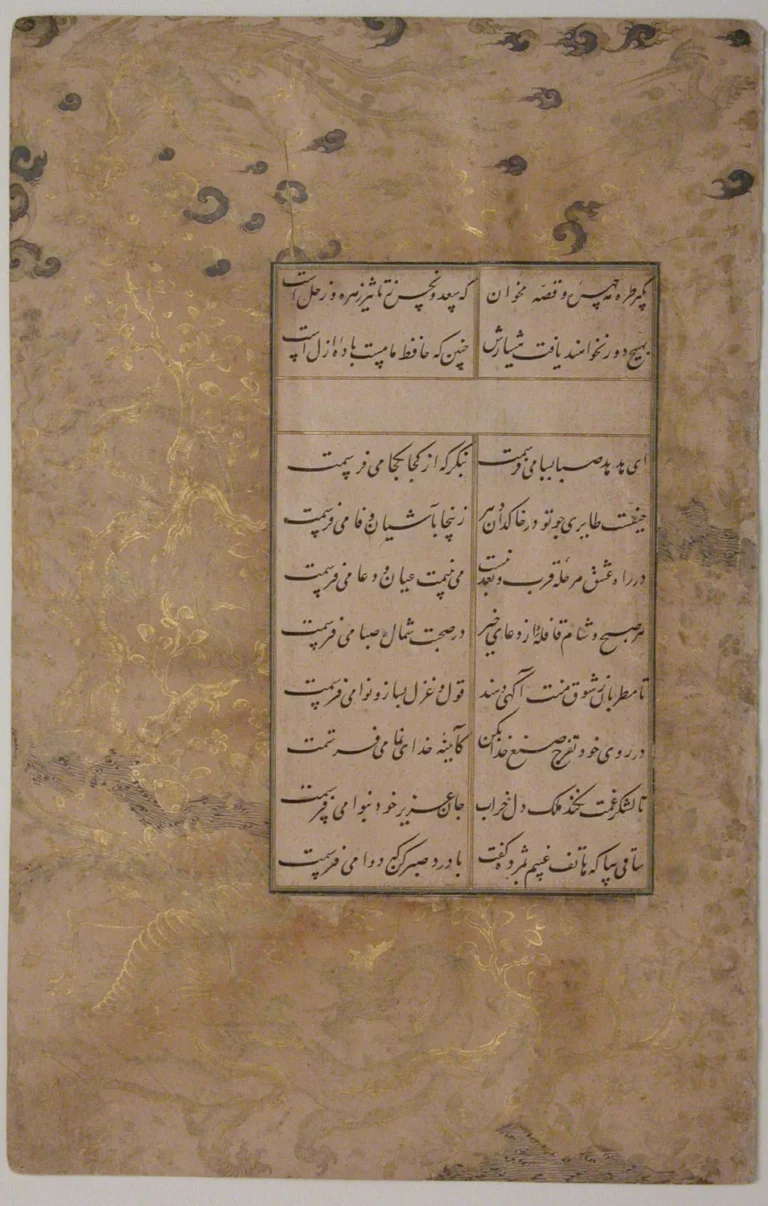 بگیر طره مه چهره و قصه مخوان که سعد و نحس ز تاثیر زهره و زحل است
بهیچ دور نخواهند یافت هشیارش چنین که حافظ ما مست باده ازل است
ای هدهد صبا بسبا می فرستمت بنگر که از کجا بکجا می فرستمت
حیفست طایری چو تو در خاکدان دهر زینجا بآشیان وفا می فرستمت
در راه عشق مرحله قرب و بعد نیست می بینمت عیان و دعا می فرستمت
هر صبح و شام قافلهٔ از دعای خیر در صحبت شمال و صبا می فرستمت
تا مطربان ز شوق منت آگهی دهند قول و غزل بساز و نوا می فرستمت
در روی خود تفرج صنع خدا بکن کآینهٔ خدای نما می فرستمت
تا لشکر غمت نکند ملک دل خراب جان عزیز خود بنوا می فرستمت
ساقی بیا که هاتف غیبم بمژده گفت با درد صبر کن که دوا می فرستمت